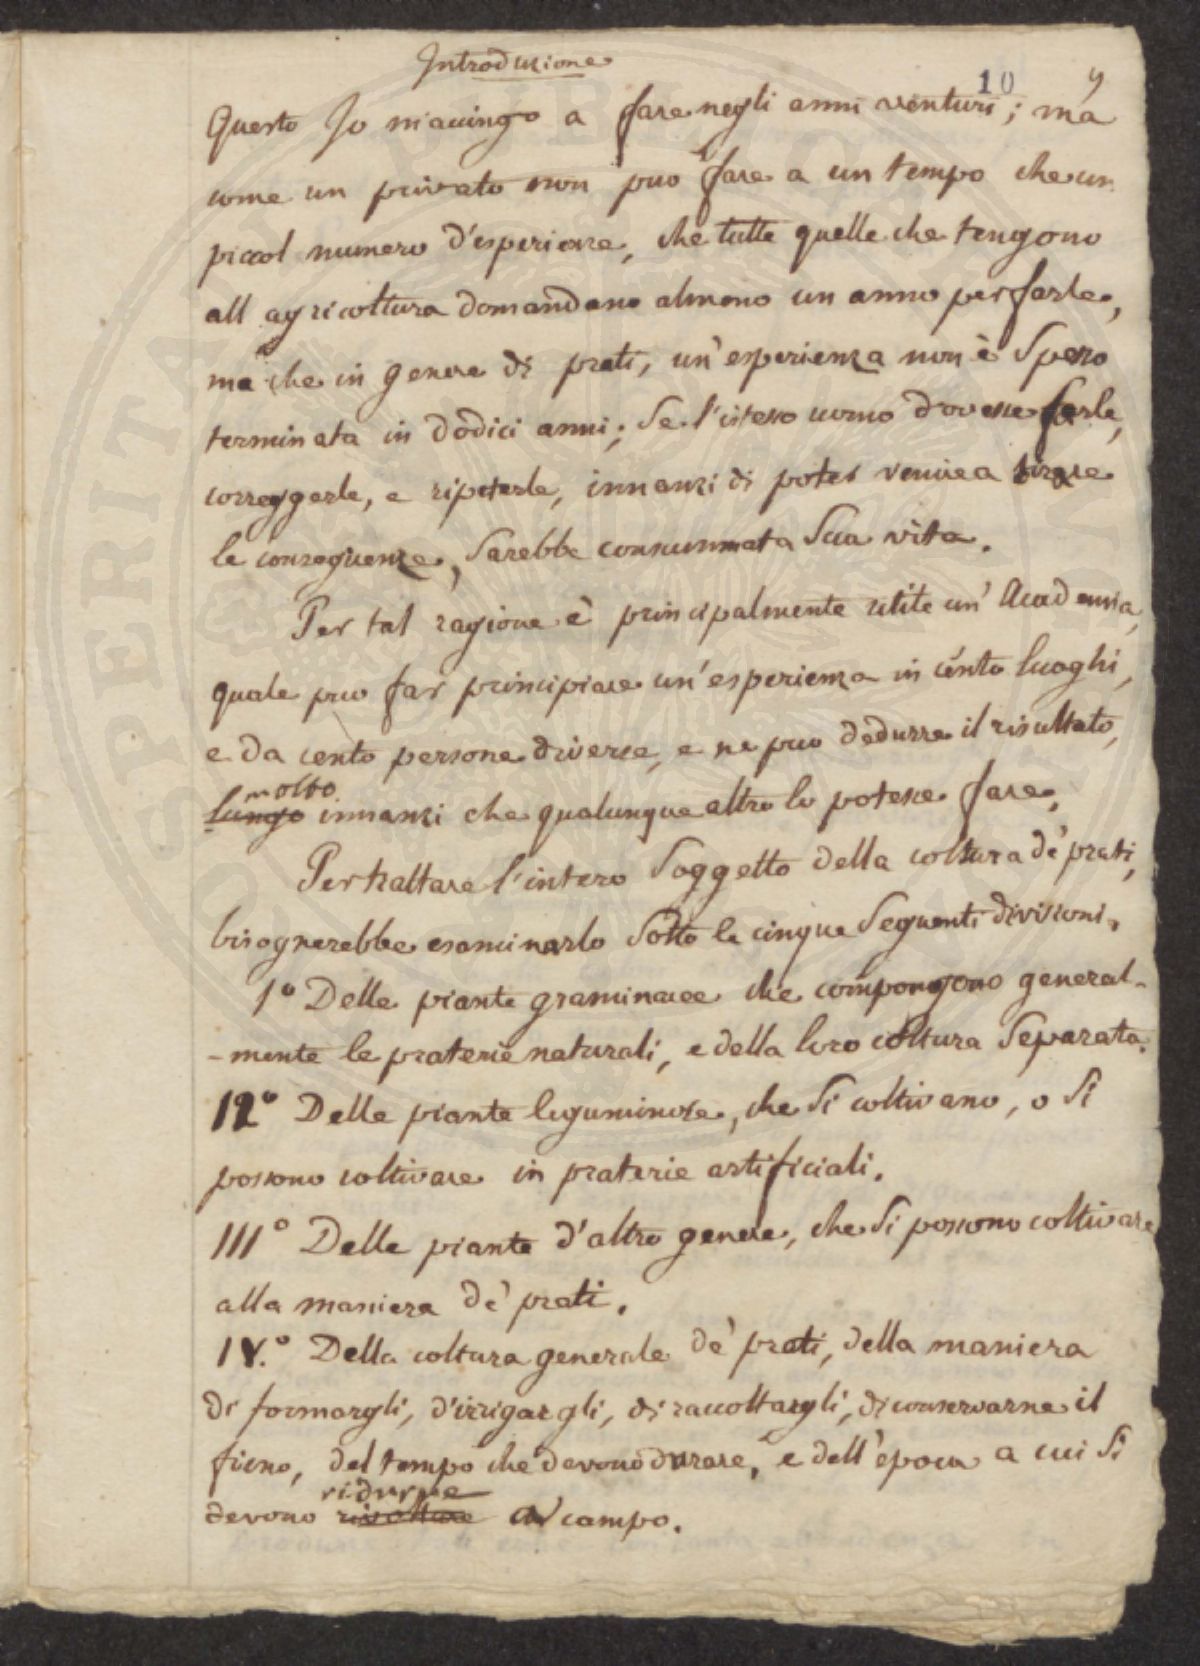 Introduzione
10 9
Questo Jo m'accingo a fare negli anni venturi; ma
come un privato non può fare a un tempo che un
piccol numero d'esperienze, che tutte quelle che tengono
all agricoltura domandano almeno un anno per farle,
ma che in genere di prati, un'esperienza non è Spesso
terminata in dodici anni; Se l'istesso uomo dovesse farle,
correggerle, e ripeterle, innanzi di poter venire a tirare
le conseguenze, Sarebbe consummata Sua vita.
Per tal ragione è principalmente utile un' Academia,
quale può far principiare un'esperienza in cento luoghi,
e da cento persone diverse, e ne può dedurre il risultato,
molto
lungo innanzi che qualunque altro lo potesse fare.
Per trattare l'intero Soggetto della coltura de' prati,
bisognerebbe esaminarlo Sotto le cinque Seguenti divisioni.
1° Delle piante graminacee che compongono general-
-mente le praterie naturali, e della loro coltura Separata.
12° Delle piante leguminose, che Si coltivano, o Si
possono coltivare in praterie artificiali.
III° Delle piante d'altro genere, che Si possono coltivare
alla maniera de' prati.
IV.° Della coltura generale de' prati, della maniera
di formargli, d'irrigargli, di raccoltargli, di conservarne il
fieno, del tempo che devono durare, e dell'epoca a cui Si
ridurre
devono rivoltare a campo.
SPERITATI PUBLICAE NOVO